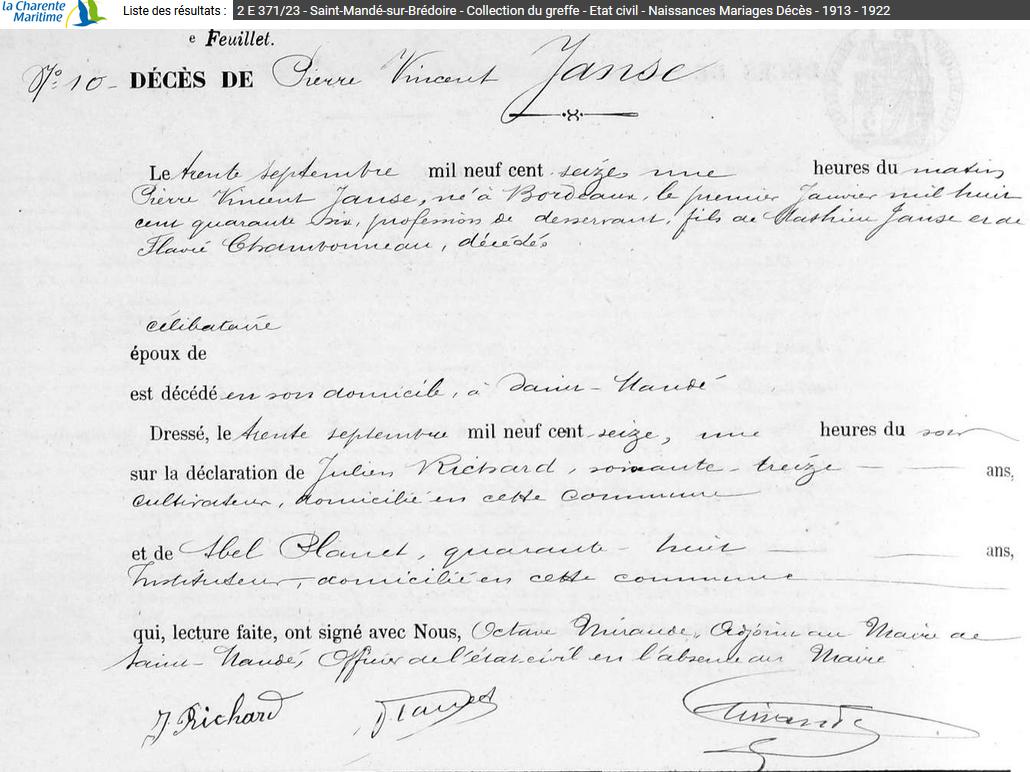 la Charente
Maritime
Liste des résultats : 2 E 371/23 - Saint-Mandé-sur-Brédoire - Collection du greffe - Etat civil - Naissances Mariages Décès - 1913 - 1922
e Feuillet.
N° 10 - DÉCÈS DE Pierre Vincent Janse
Le trente septembre mil neuf cent seize, une heures du matin
Pierre Vincent Janse, né à Bordeaux, le premier Janvier mil huit
cent quarante six, profession de desservant, fils de Mathieu Janse et de
Flavie Chambonneau, décédés
célibataire
époux de
est décédé en son domicile, à Saint-Mandé
Dressé, le trente septembre mil neuf cent seize, une heures du soir
sur la déclaration de Julien Richard, soixante-treize ans,
cultivateur, domicilié en cette commune
et de Abel Planet, quarante-huit ans,
Instituteur, domicilié en cette commune
qui, lecture faite, ont signé avec Nous, Octave Mirande, Adjoint au Maire de
Saint-Mandé, Officier de l'état civil en l'absence du Maire
J. Richard